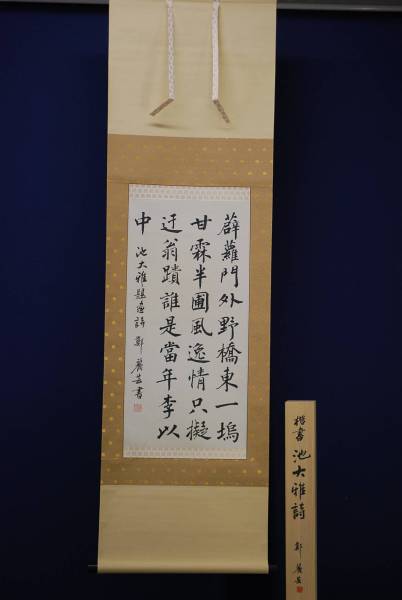 薜蘿門外野橋東一塢
甘霖半圃風逸情只擬
迂翁蹟誰是當年李以
中 池大雅題画詩 鄭 書
楷書 池大雅詩 鄭